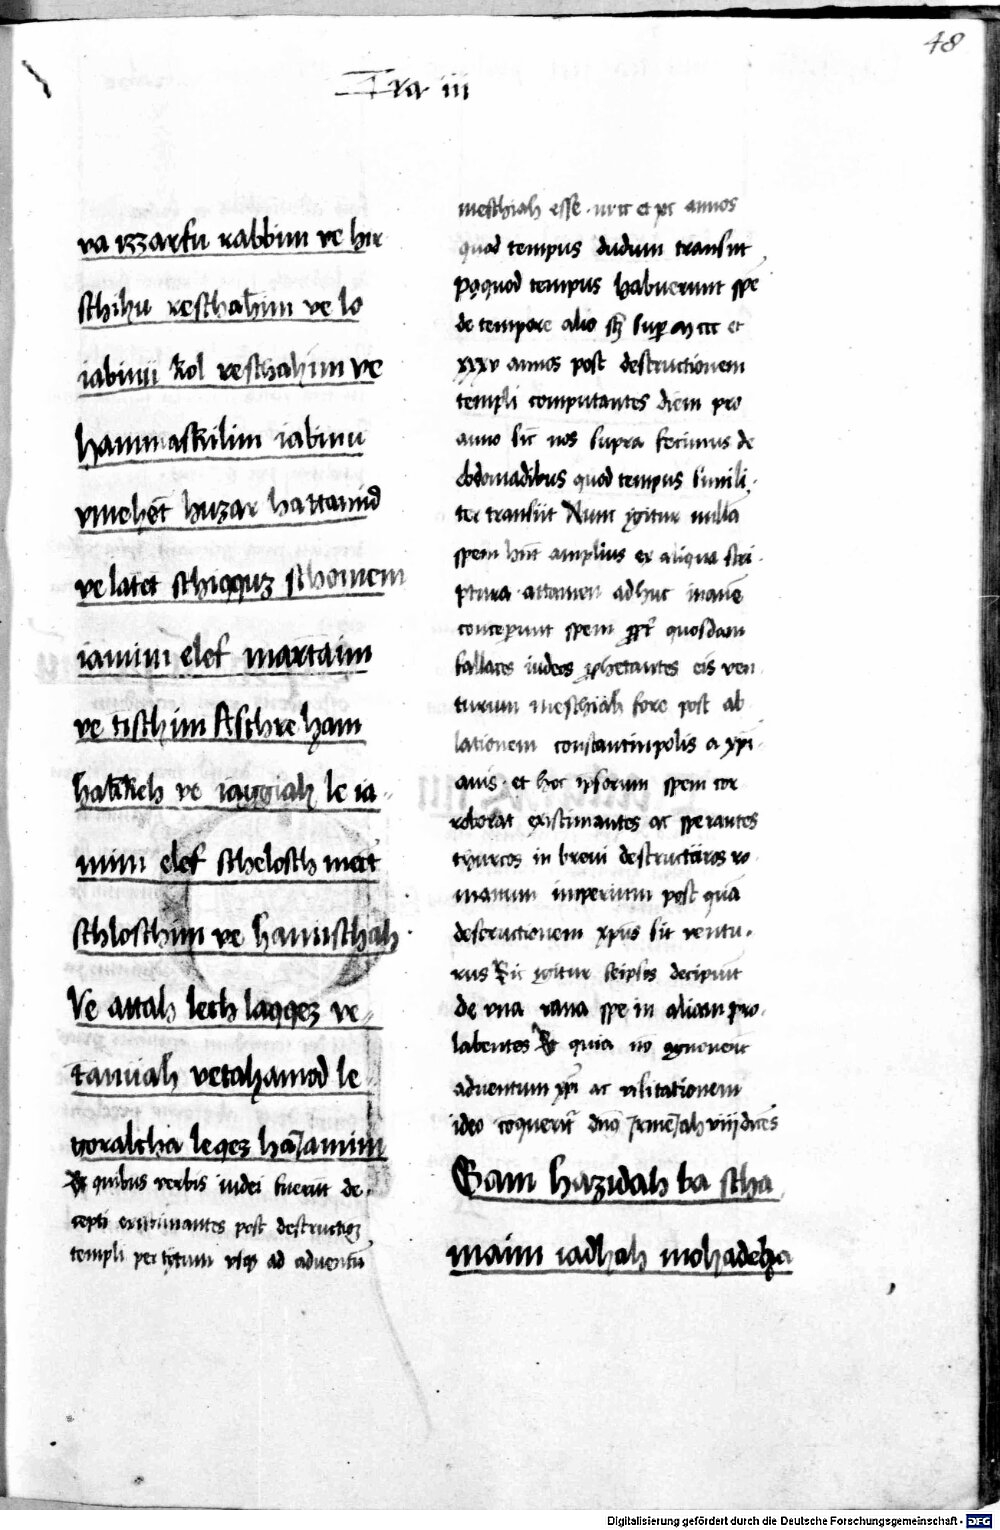 48
Tra iii
va izzarfu rabbim ve hir
schihu reschahim ve lo
iabinu kol reschahim ve
hammaskilim iabinu
vmehet huzar hattamid
ve latet schiqquz schomem
iamim elef martaim
ve tischim Aschre ham
hakkeh ve iaggiah le ia
mim elef schelosch meot
schloschim ve hamischah
Ve attah lech laqqez ve
tanuah vetahamod le
goralcha leqez haiamim
Et quibus verbis iudei fuerunt de
cepti existimantes post destructioz
templi per totum vsqz ad aduentu
meschiah esse mcc et xc annos
quod tempus dudum transiit
poquod tempus habuerunt spe
de tempore alio sz super mccc et
xxxv annos post destructionem
templi computantes diem pro
anno sic nos supra fecimus de
ebdomadibus quod tempus simili
ter transiit Num igitur nulla
spem hnt amplius ex aliqua scri
ptura attamen adhuc inane
conceperunt spem quosdam
fallaces iudeos prophetantes eis ven
turum meschiah fore post ab
lationem constantinpolis a xpi
anis et hoc ipsorum spem cor
roborat existimantes ac sperantes
thurcos in breui destructuros ro
manum imperium post qua
destructionem xpus sit ventu
rus Sic igitur seipsos decipiunt
de vna vana spe in aliam pro
labentes Et quia no agnouerunt
aduentum xpi ac visitationem
ideo conqueritur dns Jrmeiah viij dices
Gam hazidah ba scha
maim iadhah mohadeha
Digitalisierung gefördert durch die Deutsche Forschungsgemeinschaft - DFG